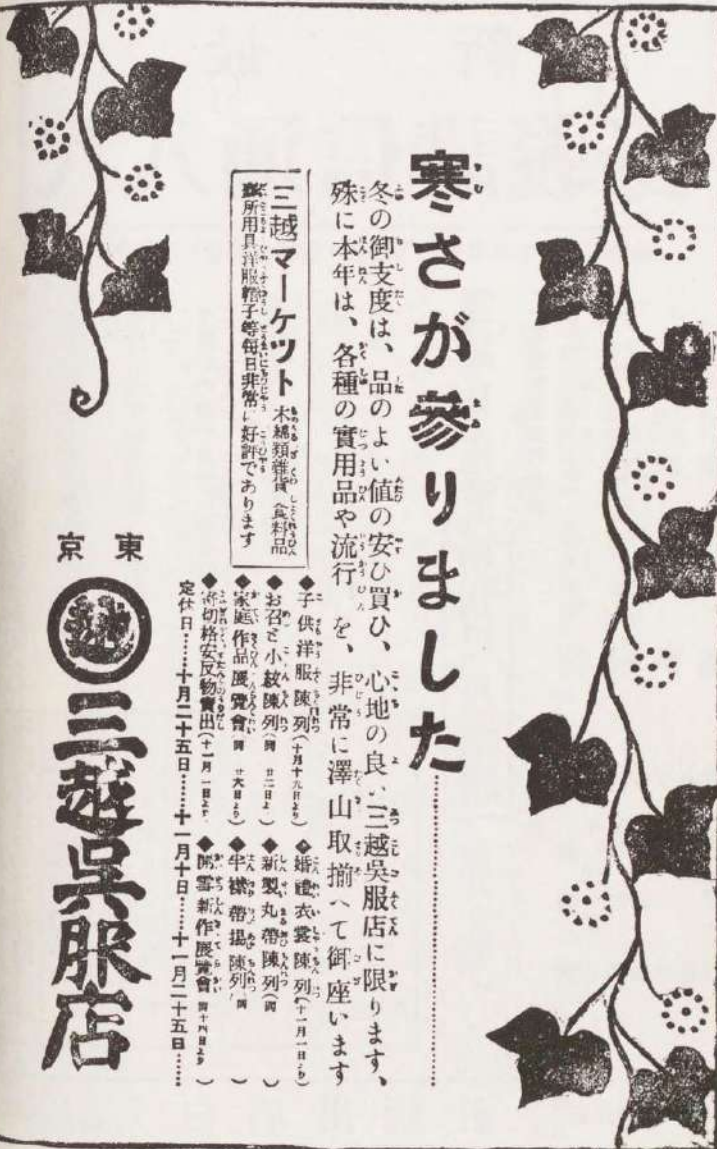 寒さが參りました
冬の御支度は、品のよい値の安ひ買ひ、心地の良い三越呉服店に限ります、
殊に本年は、各種の實用品や流行を、非常に澤山取揃へて御座います
三越マーケット 木綿類雜貨 食料品
臺所用具洋服帽子等毎日非常に好評であります
◆子供洋服陳列(十月十九日より)
◆お召と小紋陳列(同 廿二日より)
◆家庭作品展覽會(同 廿六日より)
切格安反物賣出(十一月一日より)
◆婚禮衣裳陳列(十一月一日より)
◆新製丸帶陳列(同)
◆半襟帶揚陳列(同)
新作展覽會(同十四日より)
定休日……十月二十五日……十一月十日……十一月二十五日……
東京
越
三越呉服店